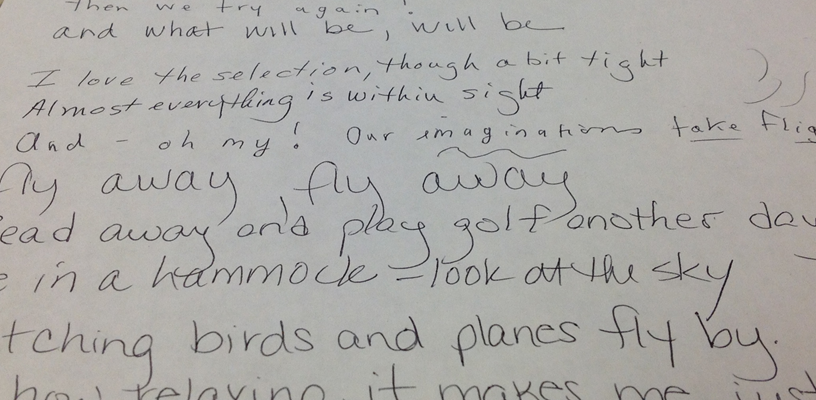 Then we try again!
and what will be, will be
I love the selection, though a bit tight
Almost everything is within sight
And - oh my! Our imaginations take flig
fly away, fly away
ead away and play golf another day
e in a hammock - look at the sky
tching birds and planes fly by.
how relaxing it makes me just